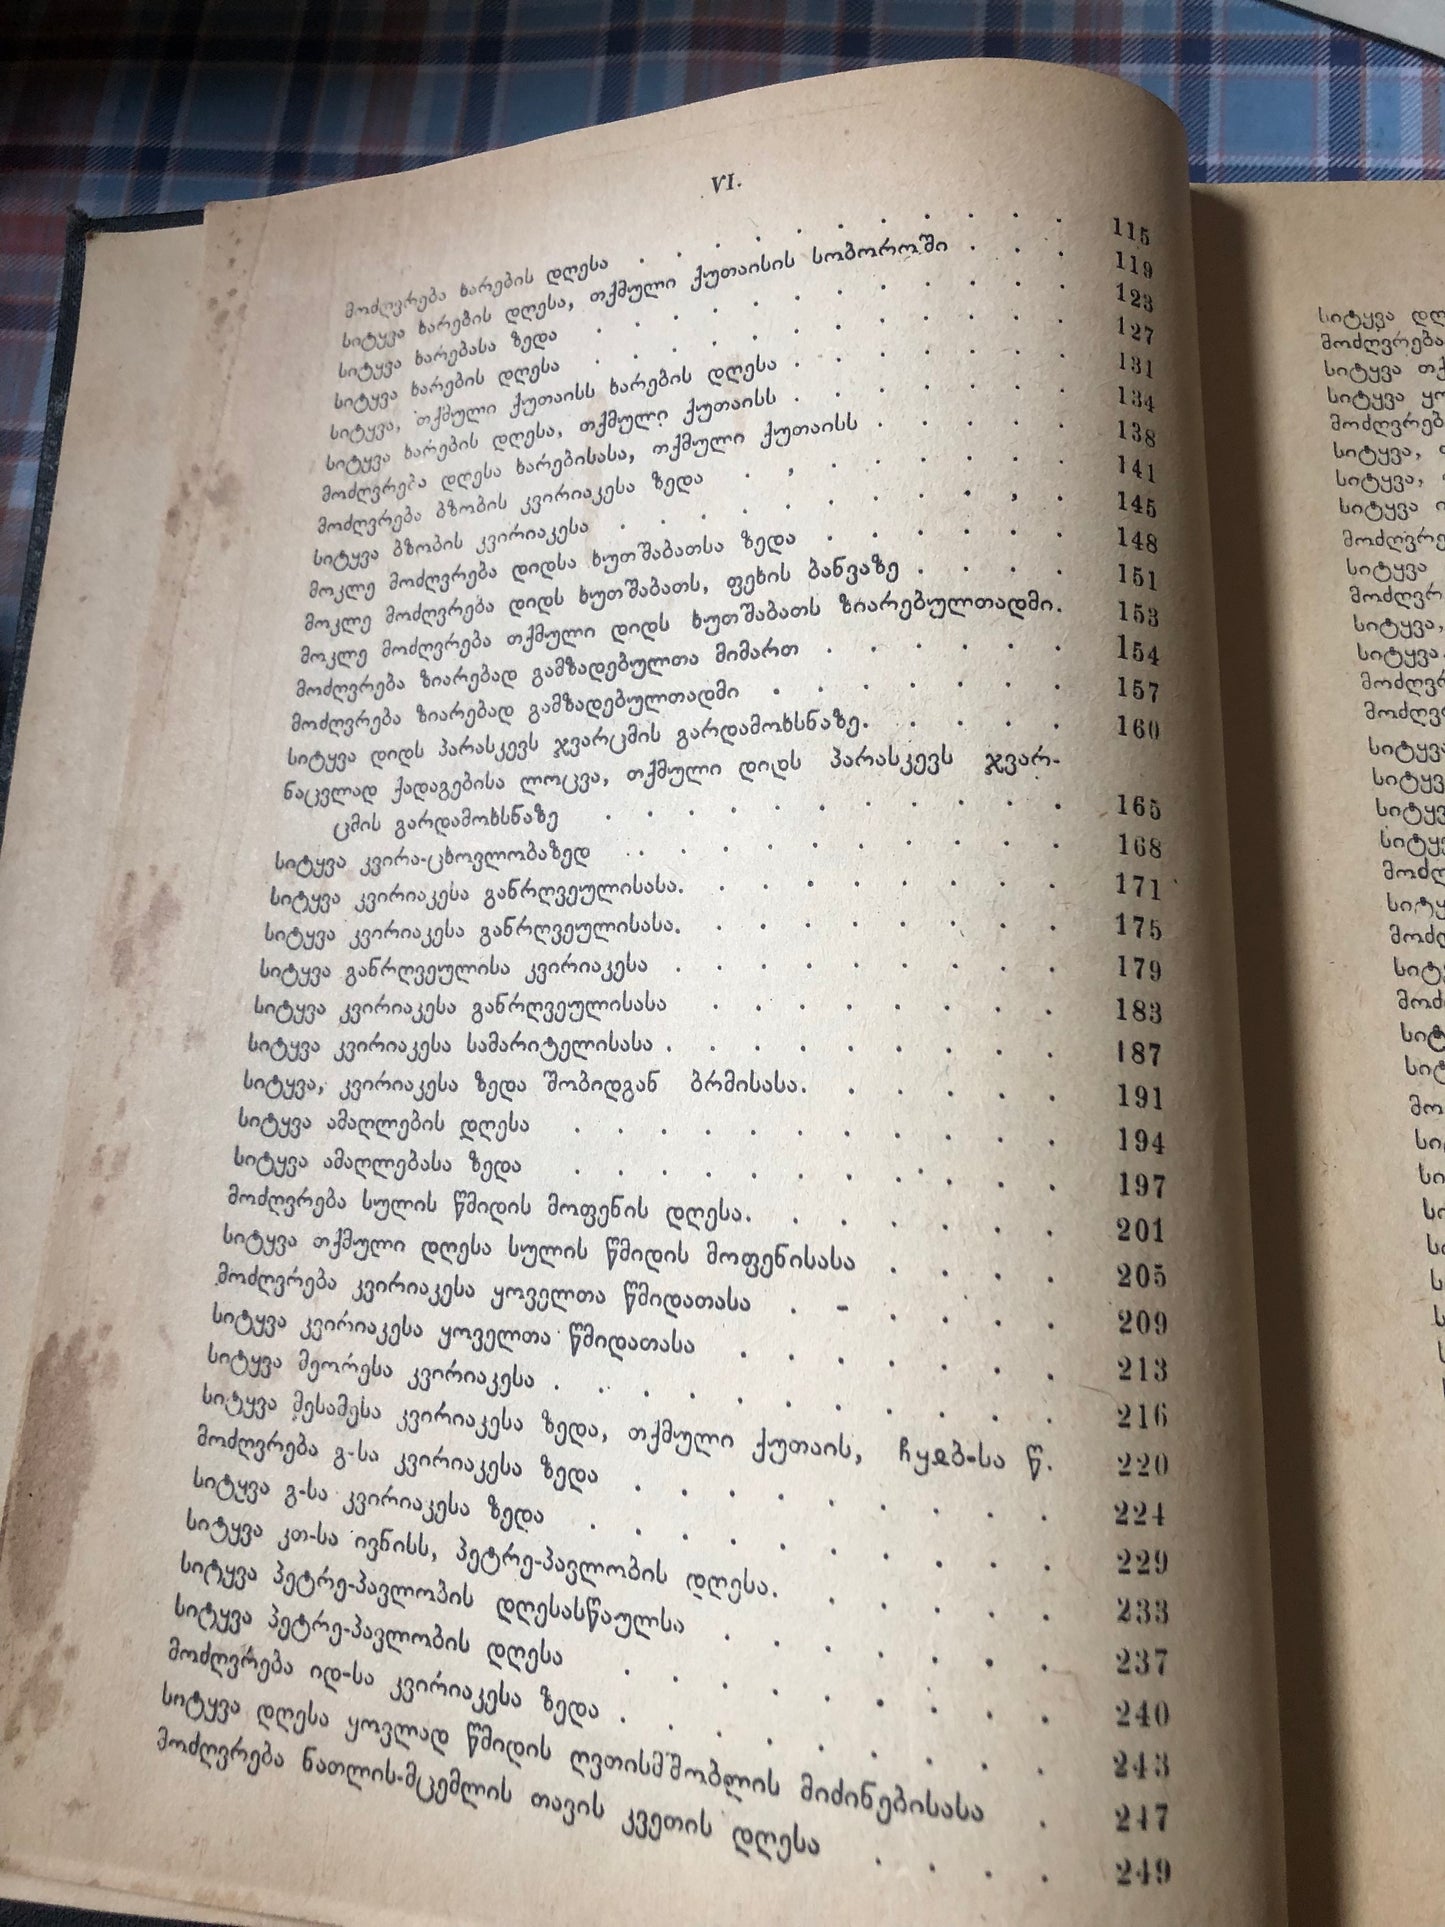 VI.
მოძღვრება ხარების დღესა . . . . . . . . . . 115
სიტყვა ხარების დღესა, თქმული ქუთაისის სობოროში . . . 119
სიტყვა ხარებასა ზედა . . . . . . . . . . . 123
სიტყვა ხარების დღესა . . . . . . . . . . . 127
სიტყვა, თქმული ქუთაისს ხარების დღესა . . . . . . . 131
სიტყვა ხარების დღესა, თქმული ქუთაისს . . . . . . . 134
მოძღვრება დღესა ხარებისასა, თქმული ქუთაისს . . . . . 138
მოძღვრება ბზობის კვირიაკესა ზედა . . . . . . . . 141
სიტყვა ბზობის კვირიაკესა . . . . . . . . . . 145
მოკლე მოძღვრება დიდსა ხუთშაბათსა ზედა . . . . . . 148
მოკლე მოძღვრება დიდს ხუთშაბათს, ფეხის ბანვაზე . . . . 151
მოკლე მოძღვრება თქმული დიდს ხუთშაბათს ზიარებულთადმი. 153
მოძღვრება ზიარებად გამზადებულთა მიმართ . . . . . . 154
მოძღვრება ზიარებად გამზადებულთადმი . . . . . . . 157
სიტყვა დიდს პარასკევს ჯვარცმის გარდამოხსნაზე. . . . . 160
ნაცვლად ქადაგებისა ლოცვა, თქმული დიდს პარასკევს ჯვარ-
ცმის გარდამოხსნაზე . . . . . . . . . . . 165
სიტყვა კვირა-ცხოვლობაზედ . . . . . . . . . . 168
სიტყვა კვირიაკესა განრღვეულისასა. . . . . . . . . 171
სიტყვა კვირიაკესა განრღვეულისასა. . . . . . . . . 175
სიტყვა განრღვეულისა კვირიაკესა . . . . . . . . . 179
სიტყვა კვირიაკესა განრღვეულისასა . . . . . . . . 183
სიტყვა კვირიაკესა სამარიტელისასა . . . . . . . . . 187
სიტყვა, კვირიაკესა ზედა შობიდგან ბრმისასა. . . . . . 191
სიტყვა ამაღლების დღესა . . . . . . . . . . . 194
სიტყვა ამაღლებასა ზედა . . . . . . . . . . . 197
მოძღვრება სულის წმიდის მოფენის დღესა. . . . . . . 201
სიტყვა თქმული დღესა სულის წმიდის მოფენისასა . . . . 205
მოძღვრება კვირიაკესა ყოველთა წმიდათასა . - . . . . 209
სიტყვა კვირიაკესა ყოველთა წმიდათასა . . . . . . . 213
სიტყვა მეორესა კვირიაკესა . . . . . . . . . . . 216
სიტყვა მესამესა კვირიაკესა ზედა, თქმული ქუთაის, ჩყჲბ-სა წ. 220
მოძღვრება გ-სა კვირიაკესა ზედა . . . . . . . . . 224
სიტყვა გ-სა კვირიაკესა ზედა . . . . . . . . . . 229
სიტყვა კთ-სა ივნისს, პეტრე-პავლობის დღესა. . . . . . 233
სიტყვა პეტრე-პავლობის დღესასწაულსა . . . . . . . 237
სიტყვა პეტრე-პავლობის დღესა . . . . . . . . . 240
მოძღვრება იდ-სა კვირიაკესა ზედა . . . . . . . . . 243
სიტყვა დღესა ყოვლად წმიდის ღვთისმშობლის მიძინებისასა . 247
მოძღვრება ნათლის-მცემლის თავის კვეთის დღესა . . . . 249